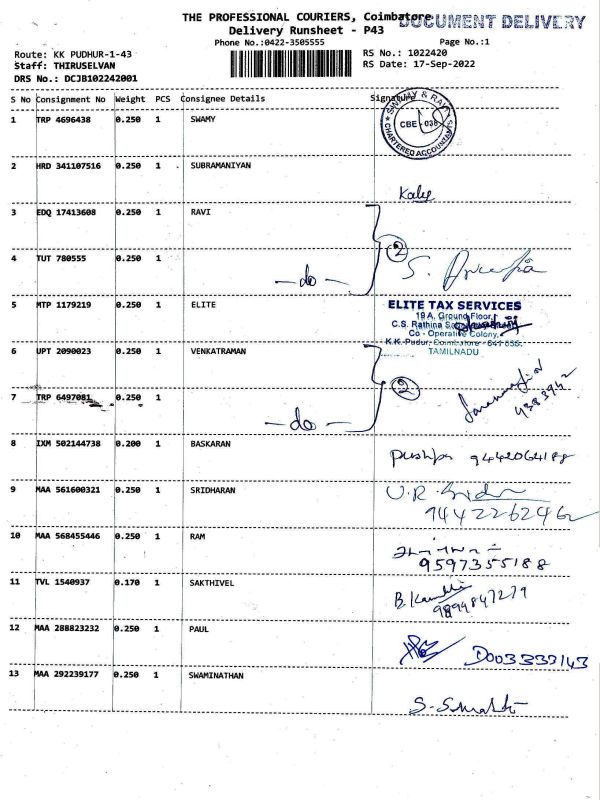 THE PROFESSIONAL COURIERS, Coimbatore
DOCUMENT DELIVERY
Delivery Runsheet - P43
Phone No.:0422-3505555
Page No.:1
Route: KK PUDHUR-1-43
RS No.: 1022420
Staff: THIRUSELVAN
RS Date: 17-Sep-2022
DRS No.: DCJB102242001
S No Consignment No Weight PCS Consignee Details Signature
1 TRP 4696438 0.250 1 SWAMY
SWAMY & RAVI
CBE - 038
CHARTERED ACCOUNTANTS
2 HRD 341107516 0.250 1 SUBRAMANIYAN
3 EDQ 17413608 0.250 1 RAVI
4 TUT 780555 0.250 1
- do -
2
S.
5 MTP 1179219 0.250 1 ELITE
ELITE TAX SERVICES
19 A, Ground Floor,
C.S. Rathina
Co - Operative Colony,
K.K. Pudur, Coimbatore - 641 038.
TAMILNADU
6 UPT 2090023 0.250 1 VENKATRAMAN
7 TRP 6497081 0.250 1
- do -
2
8 IXM 502144738 0.200 1 BASKARAN
pushpa 9442064188
9 MAA 561600321 0.250 1 SRIDHARAN
U.R.
9442262462
10 MAA 568455446 0.250 1 RAM
9597355188
11 TVL 1540937 0.170 1 SAKTHIVEL
9894847279
12 MAA 288823232 0.250 1 PAUL
D003333143
13 MAA 292239177 0.250 1 SWAMINATHAN